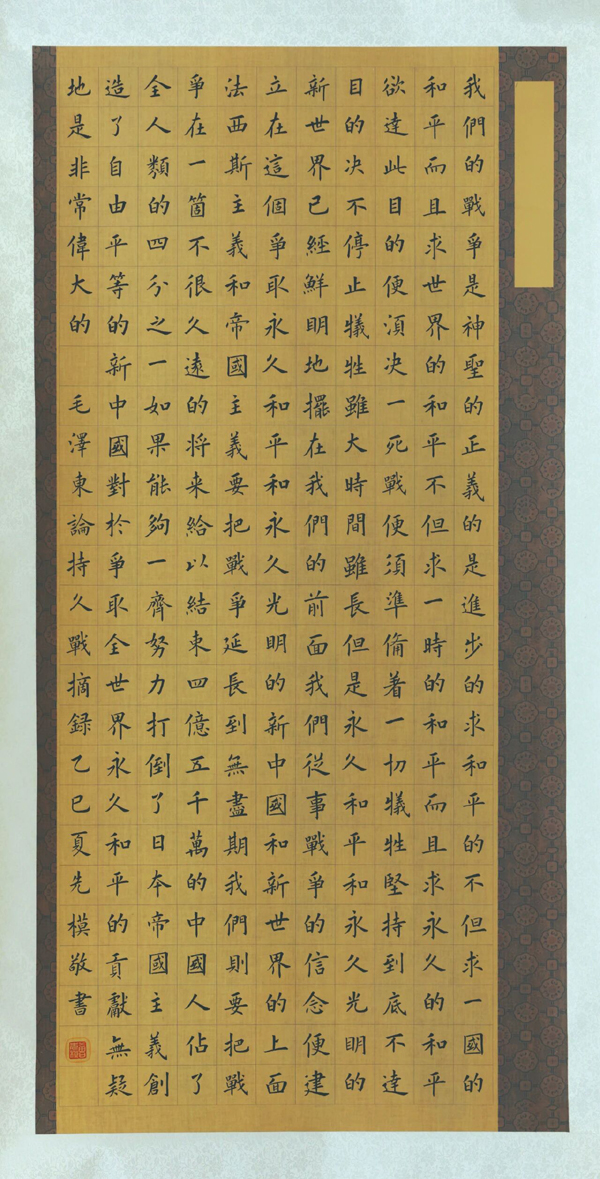 我們的戰爭是神聖的正義的是進步的求和平的不但求一國的
和平而且求世界的和平不但求一時的和平而且求永久的和平
欲達此目的便須决一死戰便須準備着一切犧牲堅持到底不達
目的决不停止犧牲雖大時間雖長但是永久和平和永久光明的
新世界已經鮮明地擺在我們的前面我們從事戰爭的信念便建
立在這個爭取永久和平和永久光明的新中國和新世界的上面
法西斯主義和帝國主義要把戰爭延長到無盡期我們則要把戰
爭在一箇不很久遠的将来給以結束四億五千萬的中國人佔了
全人類的四分之一如果能夠一齊努力打倒了日本帝國主義創
造了自由平等的新中國對於爭取全世界永久和平的貢獻無疑
地是非常偉大的 毛澤東論持久戰摘録乙巳夏先模敬書